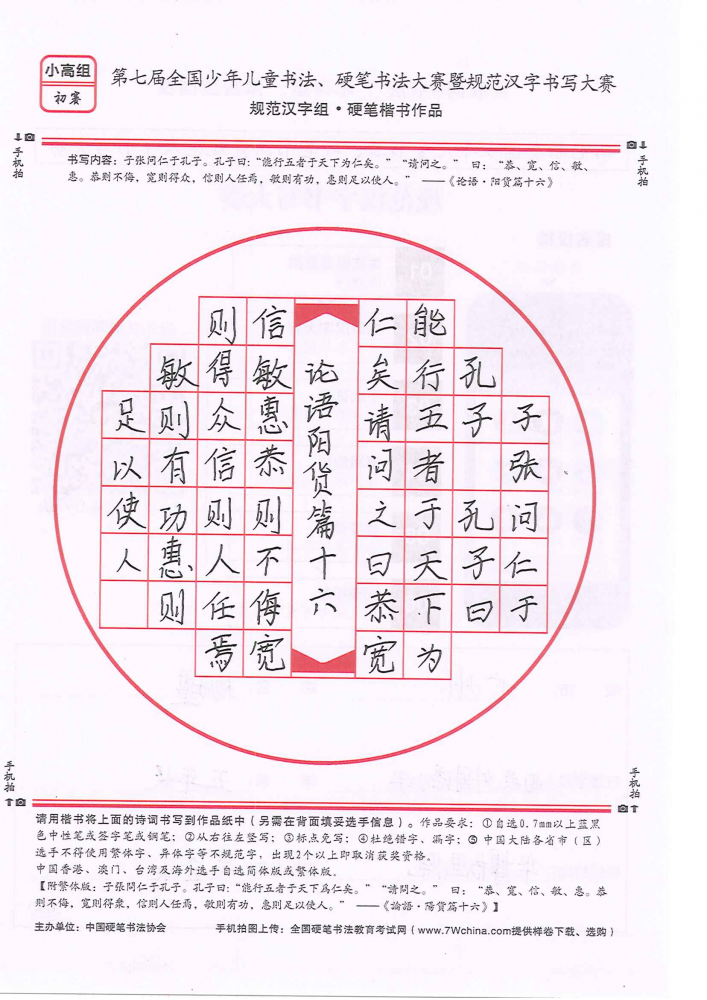 小高组
初赛
第七届全国少年儿童书法、硬笔书法大赛暨规范汉字书写大赛
规范汉字组·硬笔楷书作品
手机拍
手机拍
书写内容：子张问仁于孔子。孔子曰：“能行五者于天下为仁矣。”“请问之。”曰：“恭、宽、信、敏、
惠。恭则不侮，宽则得众，信则人任焉，敏则有功，惠则足以使人。” ——《论语·阳货篇十六》
子张问仁于
孔子 孔子曰
能行五者于天下为
仁矣请问之曰恭宽
论语阳货篇十六
信敏惠恭则不侮宽
则得众信则人任焉
敏则有功惠则
足以使人
手机拍
手机拍
请用楷书将上面的诗词书写到作品纸中（另需在背面填妥选手信息）。作品要求：①自选0.7mm以上蓝黑
色中性笔或签字笔或钢笔；②从右往左竖写；③标点免写；④杜绝错字、漏字；⑤中国大陆各省市（区）
选手不得使用繁体字、异体字等不规范字，出现2个以上即取消获奖资格。
中国香港、澳门、台湾及海外选手自选简体版或繁体版.
【附繁体版：子張問仁于孔子。孔子曰：“能行五者于天下爲仁矣。”“請問之。”曰：“恭、宽、信、敏、惠。恭
则不侮，寬则得衆，信则人任焉，敏则有功，惠则足以使人。” ——《論語·陽貨篇十六》】
主办单位：中国硬笔书法协会 手机拍图上传：全国硬笔书法教育考试网（www.7Wchina.com提供样卷下载、选购）